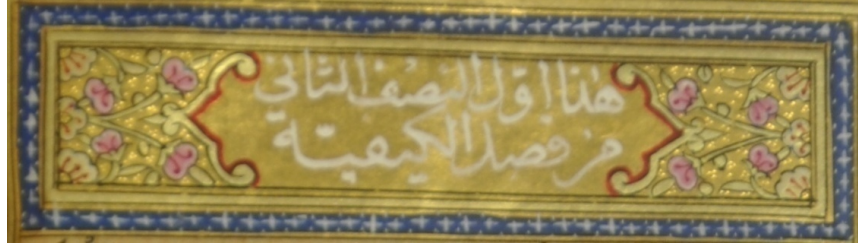 هذا اوّل النصف الثاني
من فصد الكيفيّة